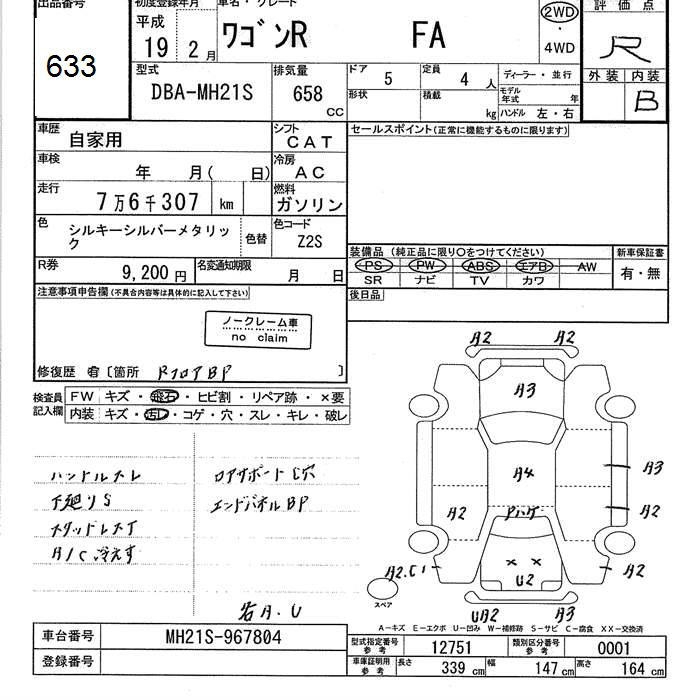 出品番号
633
初度登録年月
平成
19 2月
車名・グレード
ワゴンR FA
2WD
・
4WD
評価点
R
外装 内装
B
型式
DBA-MH21S
排気量
658
cc
ドア 5
形状
定員 4 人
積載 kg
ディーラー・並行
モデル年式 年
ハンドル 左・右
車歴 自家用
シフト CAT
セールスポイント(正常に機能するものに限ります)
車検 年 月( 日)
冷房 AC
走行 7万6千307 km
燃料 ガソリン
色 シルキーシルバーメタリック
色替
色コード Z2S
装備品 (純正品に限り○をつけてください)
PS PW ABS エアB AW
SR ナビ TV カワ
新車保証書
有・無
R券 9,200円
名変通知期限 月 日
後日品
注意事項申告欄(不具合内容等は具体的に記入して下さい)
ノークレーム車
no claim
修復歴 有 [箇所 RフロアBP ]
検査員記入欄
FW キズ・飛石・ヒビ割・リペア跡・×要
内装 キズ・汚レ・コゲ・穴・スレ・キレ・破レ
ハンドルスレ
下廻りS
A/C冷えず
ロアサポートC穴
エンドパネルBP
岩A.U
A2 A2
A3
A4
A3
A2
A2
A2.C1
A2
× ×
U2
UA2 A3
スペア
A-キズ E-エクボ U-凹み W-補修跡 S-サビ C-腐食 XX-交換済
車台番号 MH21S-967804
登録番号
型式指定番号 参考 12751
類別区分番号 参考 0001
車庫証明用 参考 長さ 339cm 幅 147cm 高さ 164cm